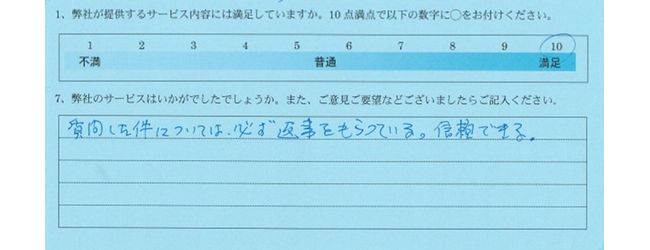 1、弊社が提供するサービス内容には満足していますか。10点満点で以下の数字に○をお付けください。
1 2 3 4 5 6 7 8 9 10
不満 普通 満足
7、弊社のサービスはいかがでしたでしょうか。また、ご意見ご要望などございましたらご記入ください。
質問した件については、必ず返事をもらっている。信頼できる。